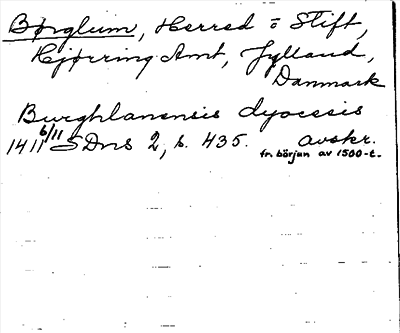 Børglum, Herred o Stift,
Hjørring Amt, Jylland,
Danmark
Burghlanensis dyocesis
1411 6/11 SDns 2, s. 435. avskr.
fr. början av 1500-t.